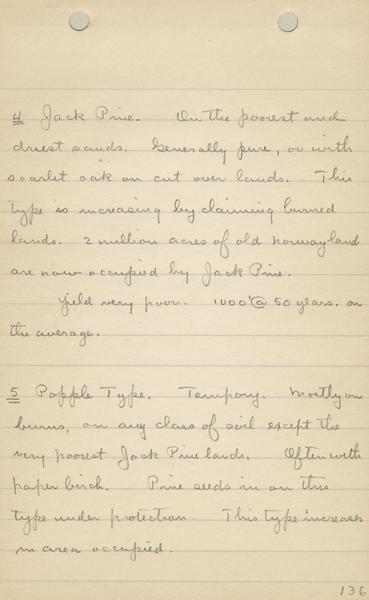 4 Jack Pine. On the poorest and
driest sands. Generally pure, or with
scarlet oak on cut over lands. This
type is increasing by claiming burned
lands. 2 million acres of old norway land
are now occupied by Jack Pine.
Yield very poor. 1000' @ 50 years. on
the average.
5 Popple Type. Tempory. Mostly on
burns, on any class of soil except the
very poorest Jack Pine lands. Often with
paper birch. Pine seeds in on this
type under protection. This type increases
in area occupied.
136